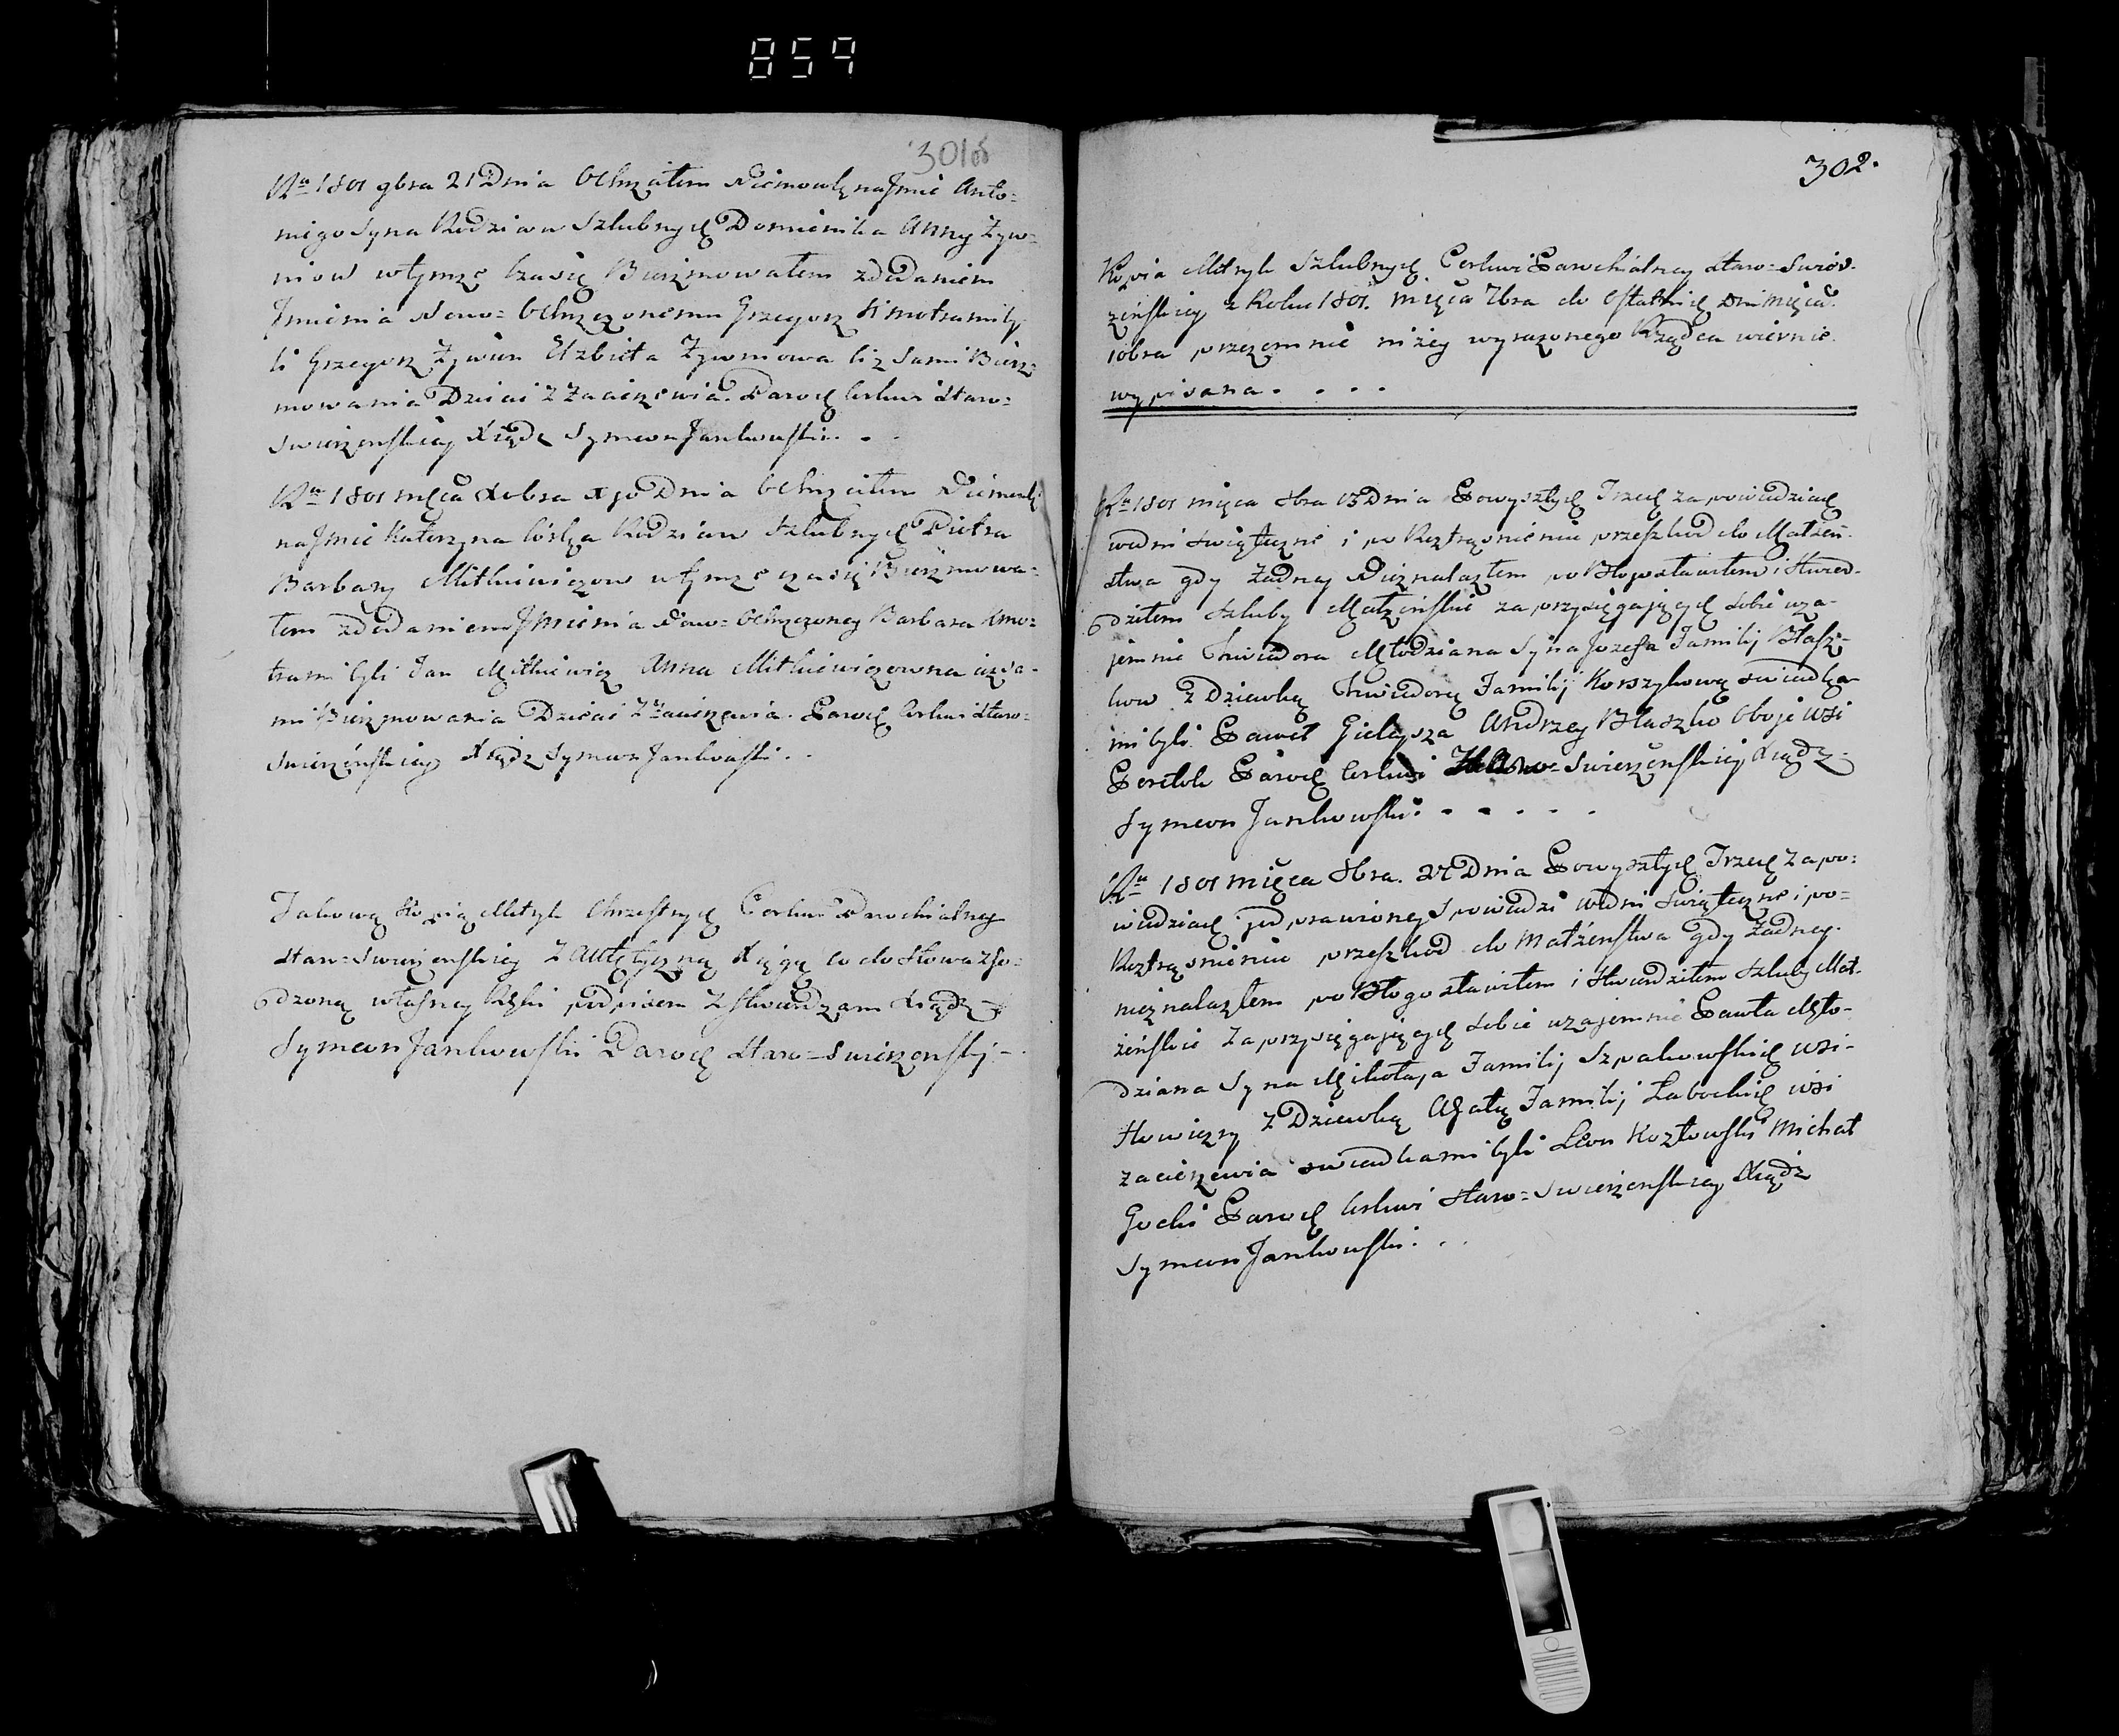 859
301
Ru 1801 9bra 21 Dnia Ochrzciłem Niemowlę na Jmie Anto=
niego Syna Rodziców Szlubnych Dominika Anny Żyw=
niow w tymże Czasie Bierzmowałem z dodaniem
Jmienia Nowo=Ochrzczonemu Grzegorz Kmotrami by=
li Grzegorz Żywień Elżbieta Żywniowa Ciż Sami Bierz=
mowania Dzieci z Zacierzewia. Paroch Cerkwi Staro=
Swierzenskiey Xiądz Symeon Jankowski.
Ru 1801 mięca Xobra Dnia Ochrzciłem Niemowle
na Jmie Katerzyna Córka Rodziców Szlubnych Piotra
Barbary Mitkiewiczow w tymże czasie Bierzmowa=
łem z dodaniem Jmienia Nowo=Ochrzczoney Barbara Kmo=
trami byli Jan Mitkiewicz Anna Mitkiewiczowna
mi Bierzmowania Dzieci z Zacierzewia. Paroch Cerkwi Staro=
Swierzeńskiey Xiądz Symeon Jankowski..
Takową Kopią Metryk Chrzestnych Cerkwi Parochialney
Staro=Swierzenskiey z Autętyczną Xięgą co do Słowa zgo=
dzoną własney Ręki podpisem Ztwierdzam Xiądz
Symeon Jankowski Paroch Staro=Swierzenski
302.
Kopia Metryk Szlubnych Cerkwi Parochialney Staro=Swier=
zenskiey z Roku 1801. Mięca 7bra do Ostatnich Dni Mięca
10bra przezemnie niżey wyrażonego Rządca wiernie
wypisana....
Ru 1801 mięca 8bra 13 Dnia Powyszłych Trzech zapowiedziach
w dni Swięteczne i po Roztrząsnieniu przeszkod do Małżeń=
stwa gdy Żadney Nieznalazłem po Błogosławiłem i Stwier=
dziłem Szluby Małżeńskie zaprzysięgających sobie wza=
jemnie Chwiedora Młodziana Syna Jozefa Familij Błasz=
kow z Dziewką Chwiedorą Familij Korszykową swiadka=
mi byli Paweł Andrzey Błaszko Oboje Wsi
Paroch Cerkwi Staro=Swierzenskiey Xiądz
Symeon Jankowski.....
Ru 1801 mięca 8bra. 27 Dnia Powyszłych Trzech Zapo=
wiedziach prawioney Spowiedzi w dni Swięteczne i po=
Roztrząsnieniu przeszkod do Małżenstwa gdy Żadney
nieznalazłem po Błogosławiłem i Stwierdziłem Szluby Mał=
żeńskie Zaprzysięgających sobie wzajemnie Pawła Mło=
dziana Syna Mikołaja Familij Szpakowskich wsi
z Dziewką Agatą Familij wsi
Zacierzewia swiadkami byli Leon Kozłowski Michał
Paroch Cerkwi Staro=Swierzenskiey Xiądz
Symeon Jankowski...